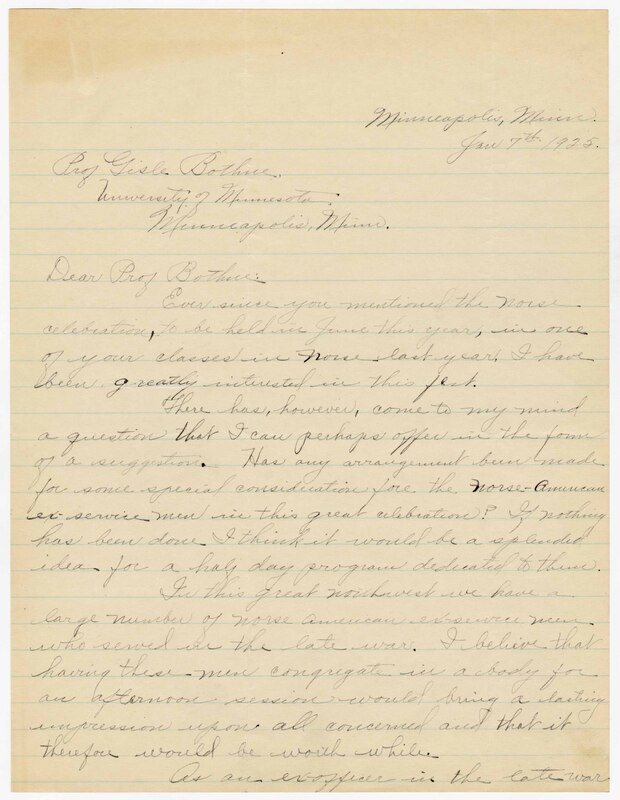 Minneapolis, Minn.
Jan 7th 1925.
Prof Gisle Bothne.
University of Minnesota.
Minneapolis, Minn.
Dear Prof Bothne:
Ever since you mentioned the norse
celebration, to be held in June this year, in one
of your classes in norse last year, I have
been greatly interested in this fest.
There has, however, come to my mind
a question that I can perhaps offer in the form
of a suggestion. Has any arrangement been made
for some special consideration fore the norse-American
ex-service men in this great celibration? If nothing
has been done I think it would be a splended
idea for a half day program dedicated to them.
In this great northwest we have a
large number of norse american ex-service men
who served in the late war. I believe that
having these men congregate in a body for
an afternoon session would bring a lasting
impression upon all concerned and that it
therefore would be worth while.
As an ex-officer in the late war